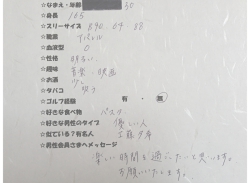 ☆なまえ・年齢 50
☆身長 165
☆スリーサイズ B90.W64.H88
☆職業 アパレル
☆血液型 O
☆性格 明るい
☆趣味 音楽・映画
☆お酒 少し
☆タバコ 吸う
☆ゴルフ経験 有・無
☆好きな食べ物 パスタ
☆好きな男性のタイプ 優しい人
☆似ている?有名人 工藤夕貴
☆男性会員さまへメッセージ
楽しい時間を過ごしたいと思います。
お願いいたします。